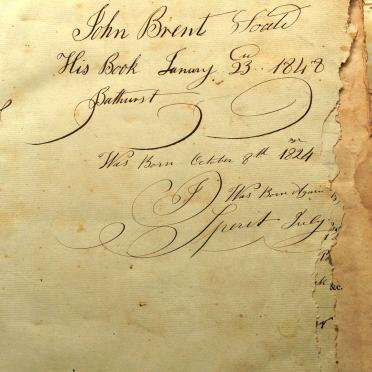 John Brent
His Book January 23 1848
Bathurst
Was Born October 8th 1824
I Was Born Again
Sperit July
&c.